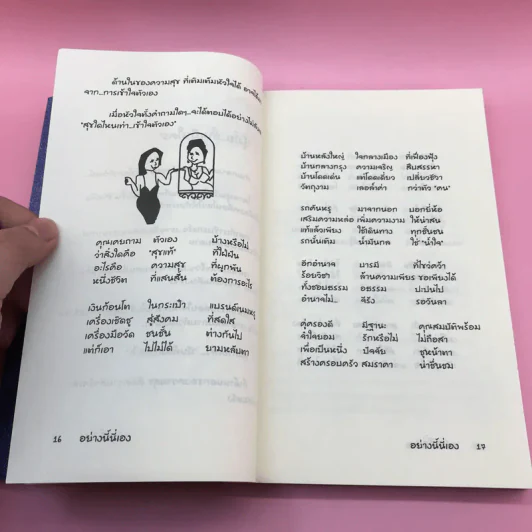 ด้านในของความสุข ที่เติมเต็มหัวใจได้
จาก..การเข้าใจตัวเอง
เมื่อหัวใจตั้งคำถามใดๆ..จะได้ตอบได้อย่าง
"สุขใดไหนเท่า..เข้าใจตัวเอง"
คุณเคยถาม ตัวเอง บ้างหรือไม่
ว่าสิ่งใดคือ "สุขแท้" ที่ใฝ่ฝัน
อะไรคือ ความสุข ที่ผูกพัน
หนึ่งชีวิต ที่แสนสั้น ต้องการอะไร
เงินก้อนโต ในกระเป๋า แบรนด์เนมหรู
เครื่องเชิดชู สู่สังคม ที่สดใส
เครื่องมือวัด ชนชั้น ต่างกันไป
แต่ก็เอา ไปไม่ได้ ยามหลับตา
16 อย่างนี้นี่เอง
บ้านหลังใหญ่ ใจกลางเมือง ที่เฟื่องฟุ้ง
บ้านกลางกรุง ความเจริญ สืบสรรหา
บ้านโดดเด่น แต่โดดเดี่ยว เปลี่ยวชีวา
วัตถุงาม เลอล้ำค่า กว่าตัว "คน"
รถคันหรู มาจากนอก บอกยี่ห้อ
เสริมความหล่อ เพิ่มความงาม ให้น่าสน
แท้แล้วเพียง ใช้เดินทาง ทุกชั้นชน
รถนั้นเติม น้ำมันกล ใช้ "น้ำใจ"
อีกอำนาจ บารมี ที่ไขว่คว้า
ร้อยวิชา ล้านความเพียร ขอเพียงได้
ทั้งชอบธรรม อธรรม ปะปนไป
อำนาจไม่.. จีรัง รอวันลา
คู่ครองดี มีฐานะ คุณสมบัติพร้อม
จำใจยอม รักหรือไม่ ไม่ถือสา
เพื่อเป็นหนึ่ง ปัจจัย ชูหน้าตา
สร้างครอบครัว สมราคา น่าชื่นชม
อย่างนี้นี่เอง 17